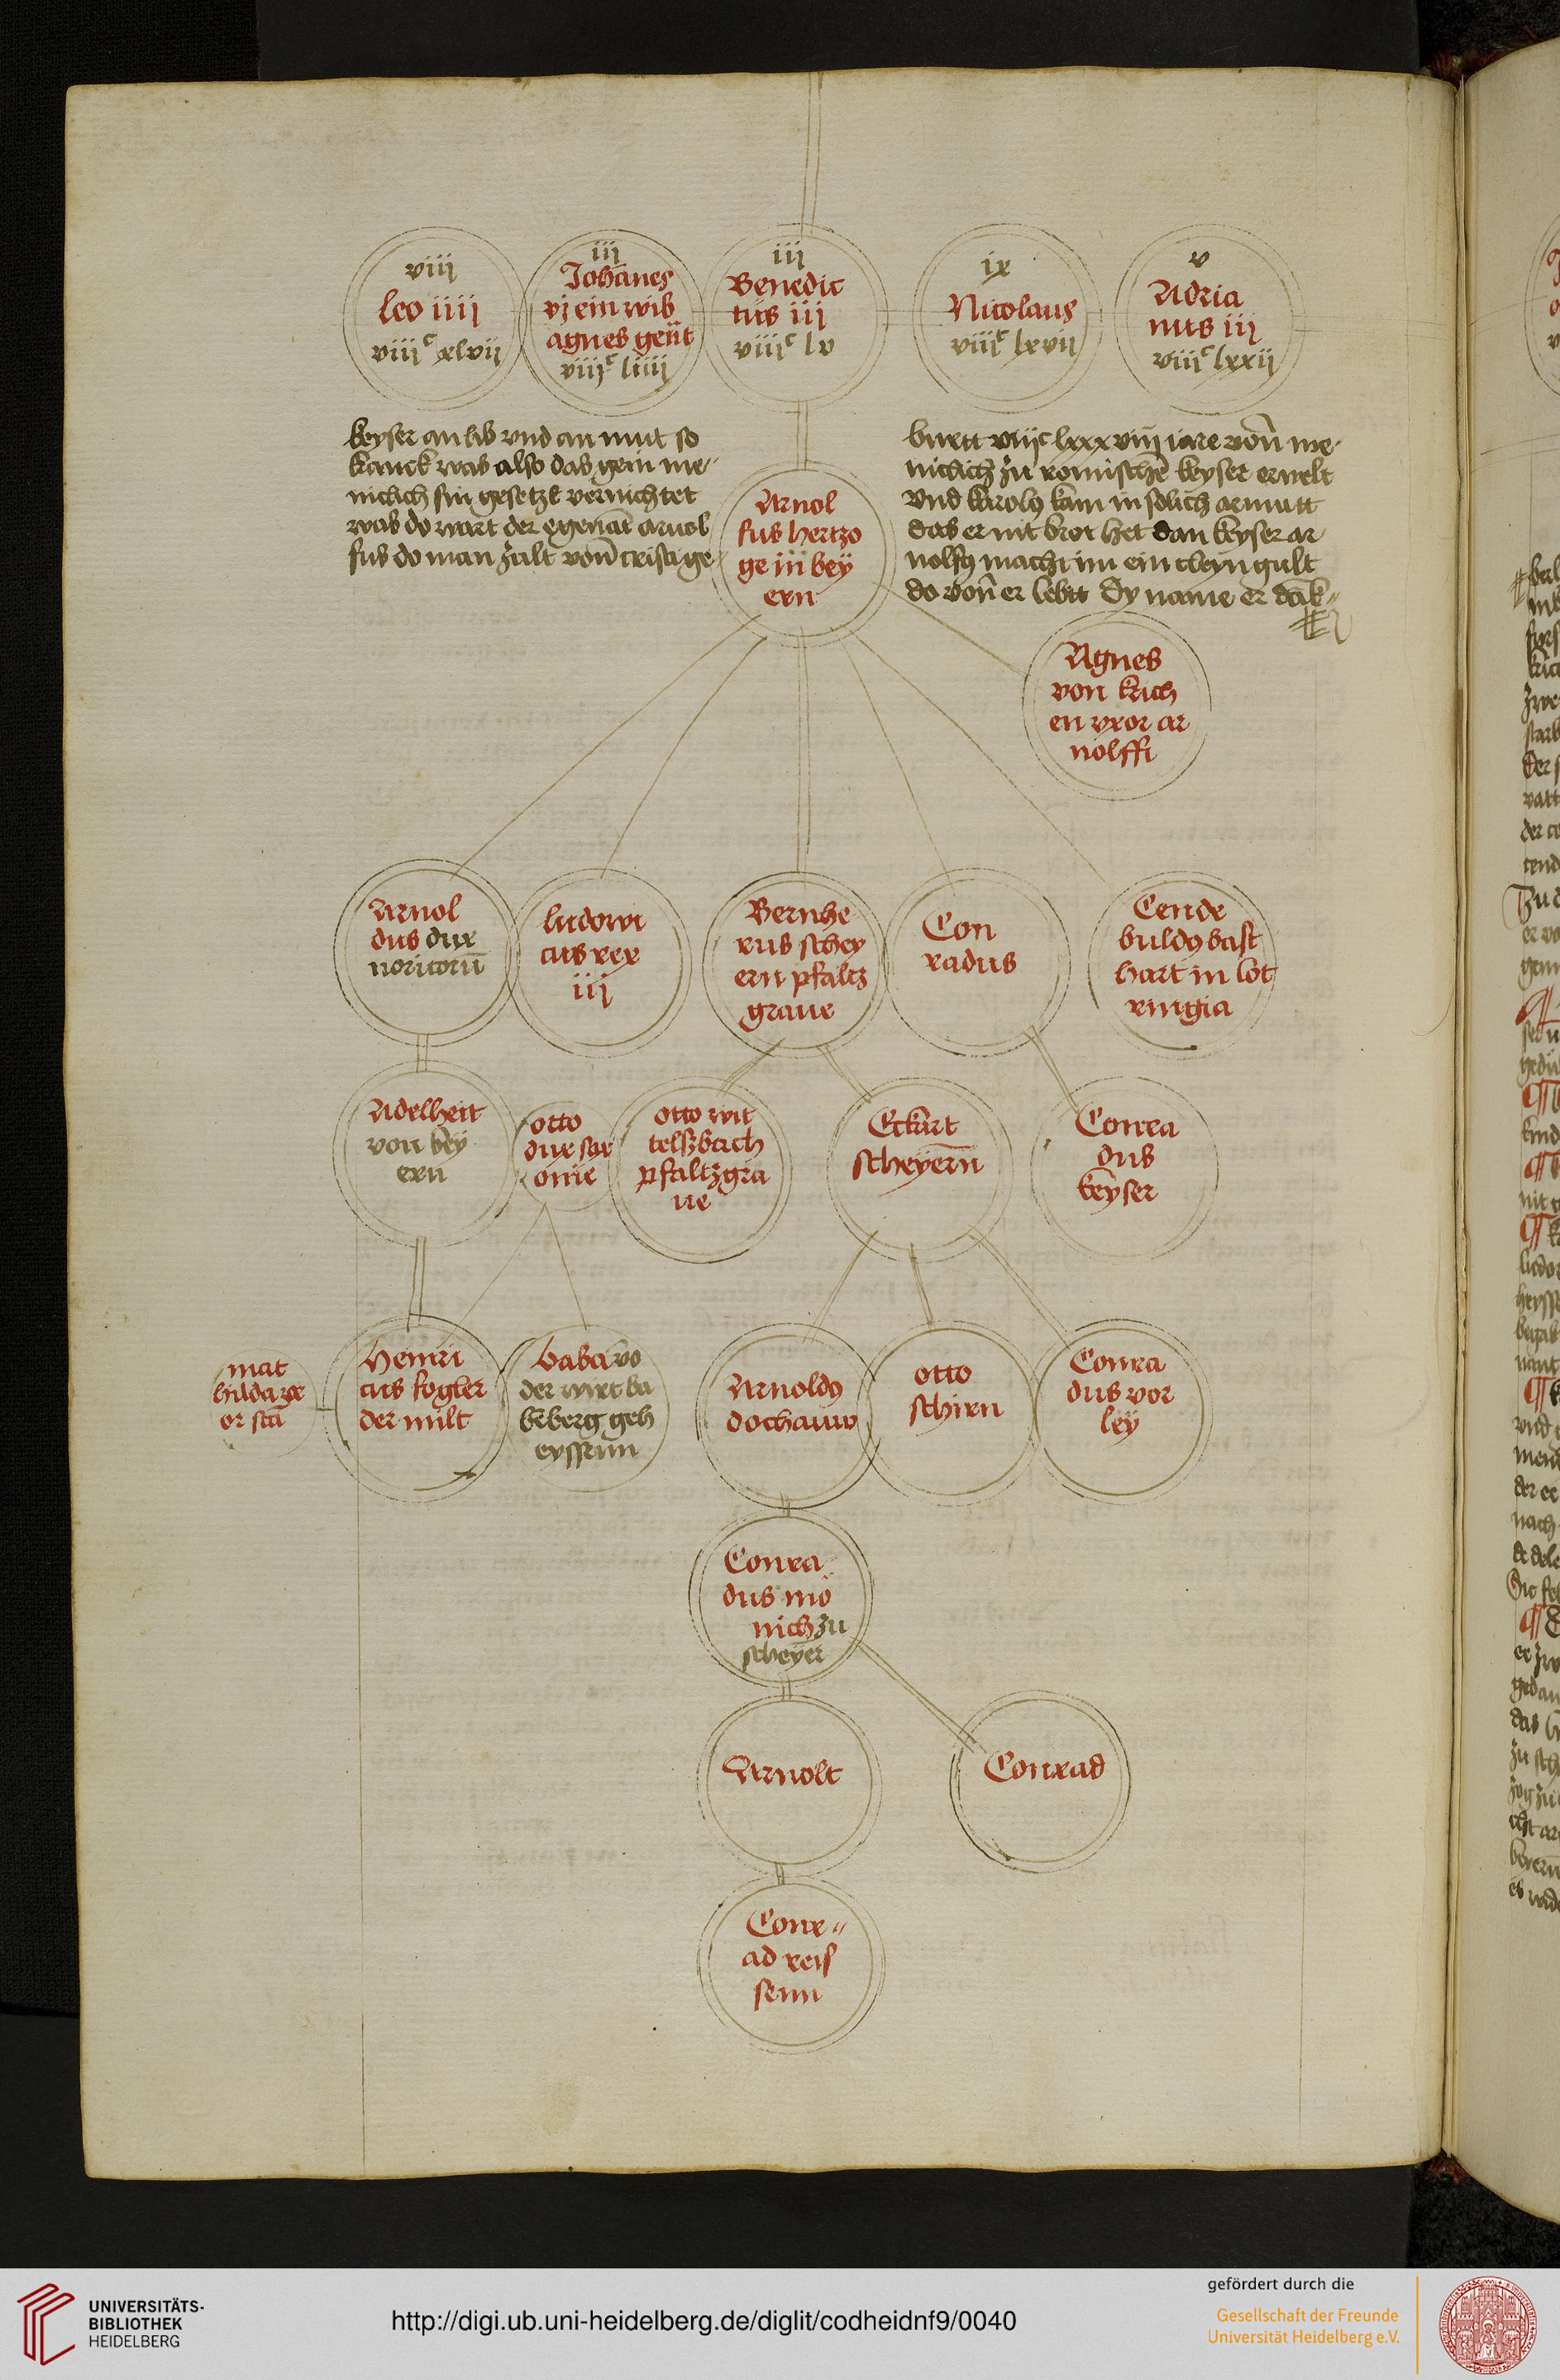 viij
leo iiij
viijc xlvij
iij
Johānes
vj ein wib
agnes geñt
viijc liiij
iij
Benedic
tus iij
viijc lv
ix
Nicolaus
viijc lxvij
v
Adria
nus iij
viijc lxxij
keyser an lib vnd an mut so
kranck was also das gein me//
niclich sin gesetze vernichtet
was do wart der egenāt arnol
fus do man zalt von̄ cristi ge
burtt viijc lxxxviij iare von̄ me-
niclich zu romischē keyser erwelt
vnd karolꝰ kam in solich armutt
das er nit brot het dan keyser ar
nolfꝰ macht im ein cleyn gult
do von̄ er lebtt Dy name er dāk//
Arnol
fus hertzo
ge in beÿ
ern
Agnes
von krich
en vxor ar
nolffi
Arnol
dus dux
noricorū
ludowi
cus rex
iij
Bernhe
rus schey
ern pfaltz
graue
Con
radus
Cende
buldꝰ bast
hart in lot
ringia
Adelheit
von beÿ
ern
otto
dux sax
onie
otto wit
telszbach
pfaltzgra
ue
Eckart
scheÿern̄
Conra
dus
keyser
mat
hilda vx
or scā
Heinri
cus fogler
der milt
baba vō
der wirt ba
bēberg geh
eyssenn
Arnoldꝰ
dochauw
otto
schirn
Conra
dus vor
leÿ
Conra
dus mö
nich zu
scheÿer
Arnolt
Conrad
Conr//
ad reis
senn
UNIVERSITÄTS-
BIBLIOTHEK
HEIDELBERG
http://digi.ub.uni-heidelberg.de/diglit/codheidnf9/0040
gefördert durch die
Gesellschaft der Freunde
Universität Heidelberg e.V.